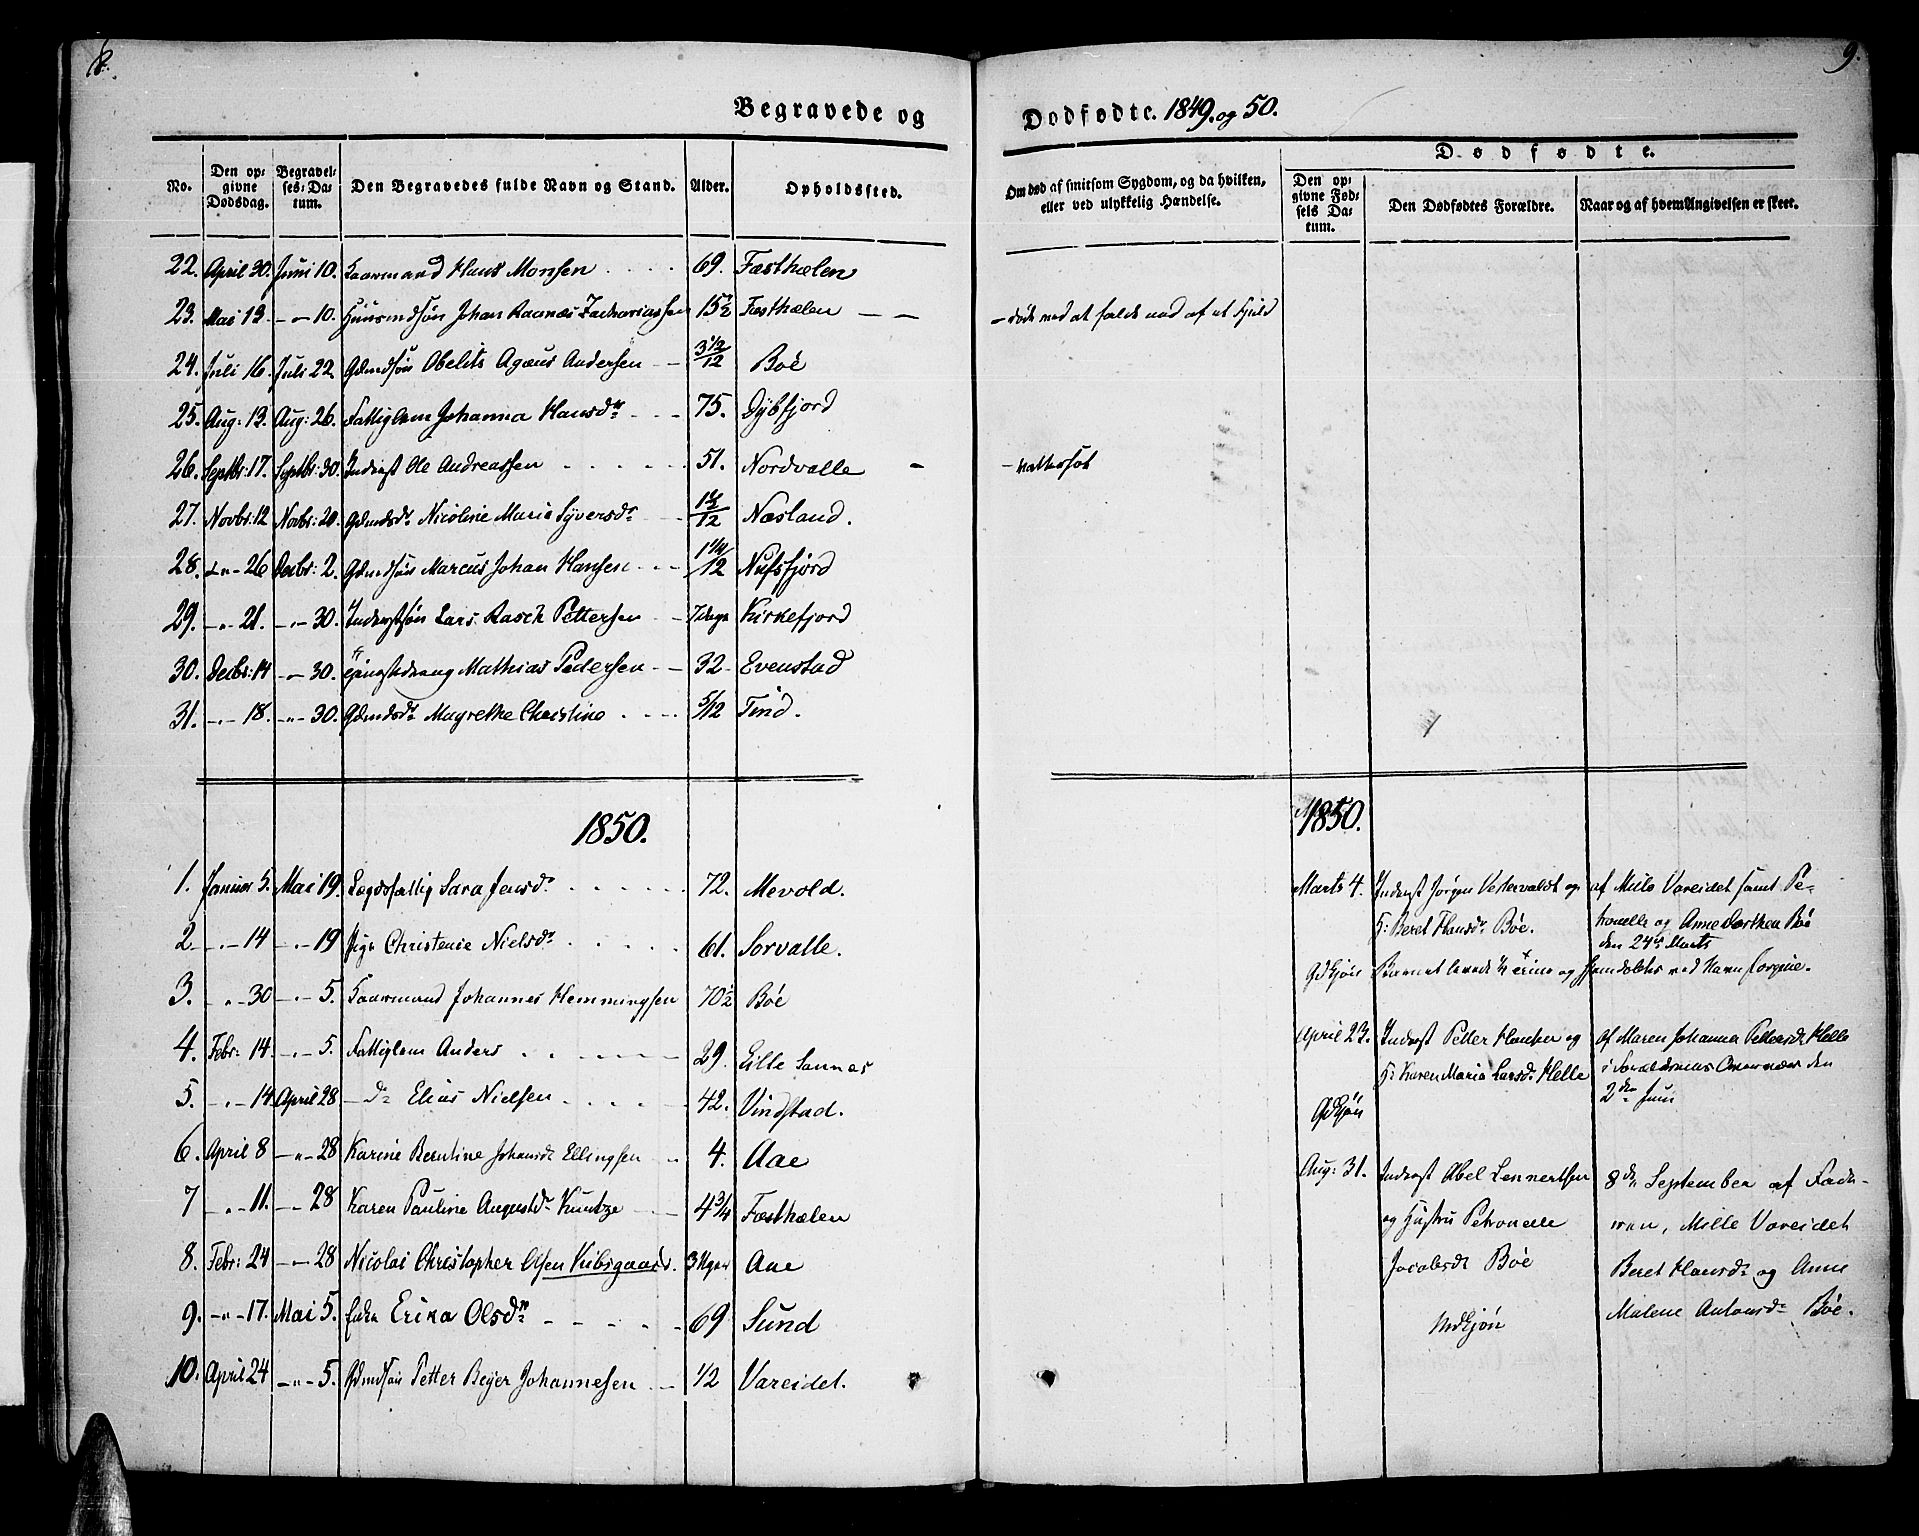 8.
9.
Begravede og
Dødfødte. 1849. og 50.
No.
Den opgivne Dødsdag.
Begravelses-Datum.
Den Begravedes fulde Navn og Stand.
Alder.
Opholdssted.
Om død af smitsom Sygdom, og da hvilken, eller ved ulykkelig Hændelse.
Dødfødte.
Den opgivne Fødsels Datum.
Den Dødfødtes Forældre.
Naar og af hvem Angivelsen er skeet.
22. April 30. Juni 10. Kaarmand Hans Monsen 69. Fæsthælen
23. Mai 13. -"- 10. Huusmdsøn Johan Raanæs Zachariassen 15½ Fæsthælen - døde ved at falde ned af et Fjeld
24. Juli 16. Juli 22. Gdmdsøn Obelits Agæus Andersen 3½/12 Bøe
25. Aug: 13. Aug: 26. Fattiglem Johanna Hansdr 75. Dybfjord
26. Septbr: 17. Septbr: 30. Inderst Ole Andreassen 51. Nordvalle - Vattersot
27. Novbr: 12 Novbr: 20. Gdmdsdr Nicoline Maria Syversdr 1½/12 Næsland.
28. -"- 26 Decbr: 2. Gdmdsøn Marcus Johan Hansen 1¼/12 Nufsfjord
29. -"- 21. -"- 30. Inderstsøn Lars Rasch Pettersen 7 Dage Kirkefjord
30. Decbr: 14 -"- 30. Tjenestedreng Mathias Pedersen 32 Evenstad
31. -"- 18. -"- 30. Gdmdsdr Magrethe Christine 5/12 Tind.
1850.
1850.
1. Januar 5. Mai 19. Lægdsfattig Sara Jensdr 72. Mevold.
2. -"- 14 -"- 19 Pige Christense Nielsdr 61. Sørvalle.
3. -"- 30 -"- 5. Kaarmand Johannes Hemmingsen 70½ Bøe
4. Febr: 14. -"- 5. Fattiglem Anders 29. Lille Sannes
5. -"- 14 April 28 - do Elias Nielsen 42. Vindstad.
6. April 8 -"- 28 Karine Berntine Johansdr Ellingsen 4. Aae
7 -"- 11. -"- 28 Karen Pauline Augustdr Kuntze 4¾ Fæsthælen
8. Febr: 24 -"- 28 Nicolai Christopher Olsen Vibsgaard. 3 Uger Aae
9. -"- 17. Mai 5. Enke Erika Olsdr 69 Sund
10. April 24 -"- 5. Gdmdsøn Petter Bejer Johannesen 1/2 Vareidet.
Marts 4. Inderst Jørgen Vestervaldt og
H: Beret Hansdr Bøe.
af Mille Vareidet samt Petronelle og Anne Dorthea Bøe
den 24de Marts
Qvdkjøn Barnet levede ½ Time og hjemdøbtes ved Navn
April 23. Inderst Petter Hansen og
H: Karen Maria Larsdr Helle
Qvdkjøn
af Maren Johanna Pettersdr Helle
i Forældrenes Nærvær den
2den Juni
Aug: 31. Inderst Abel Lennertsen
og Hustru Petronelle
Jacobsdr Bøe
Mdkjøn
8de September af Faderen, Mille Vareidet
Beret Hansdr og Anne
Malene Antonsdr Bøe.